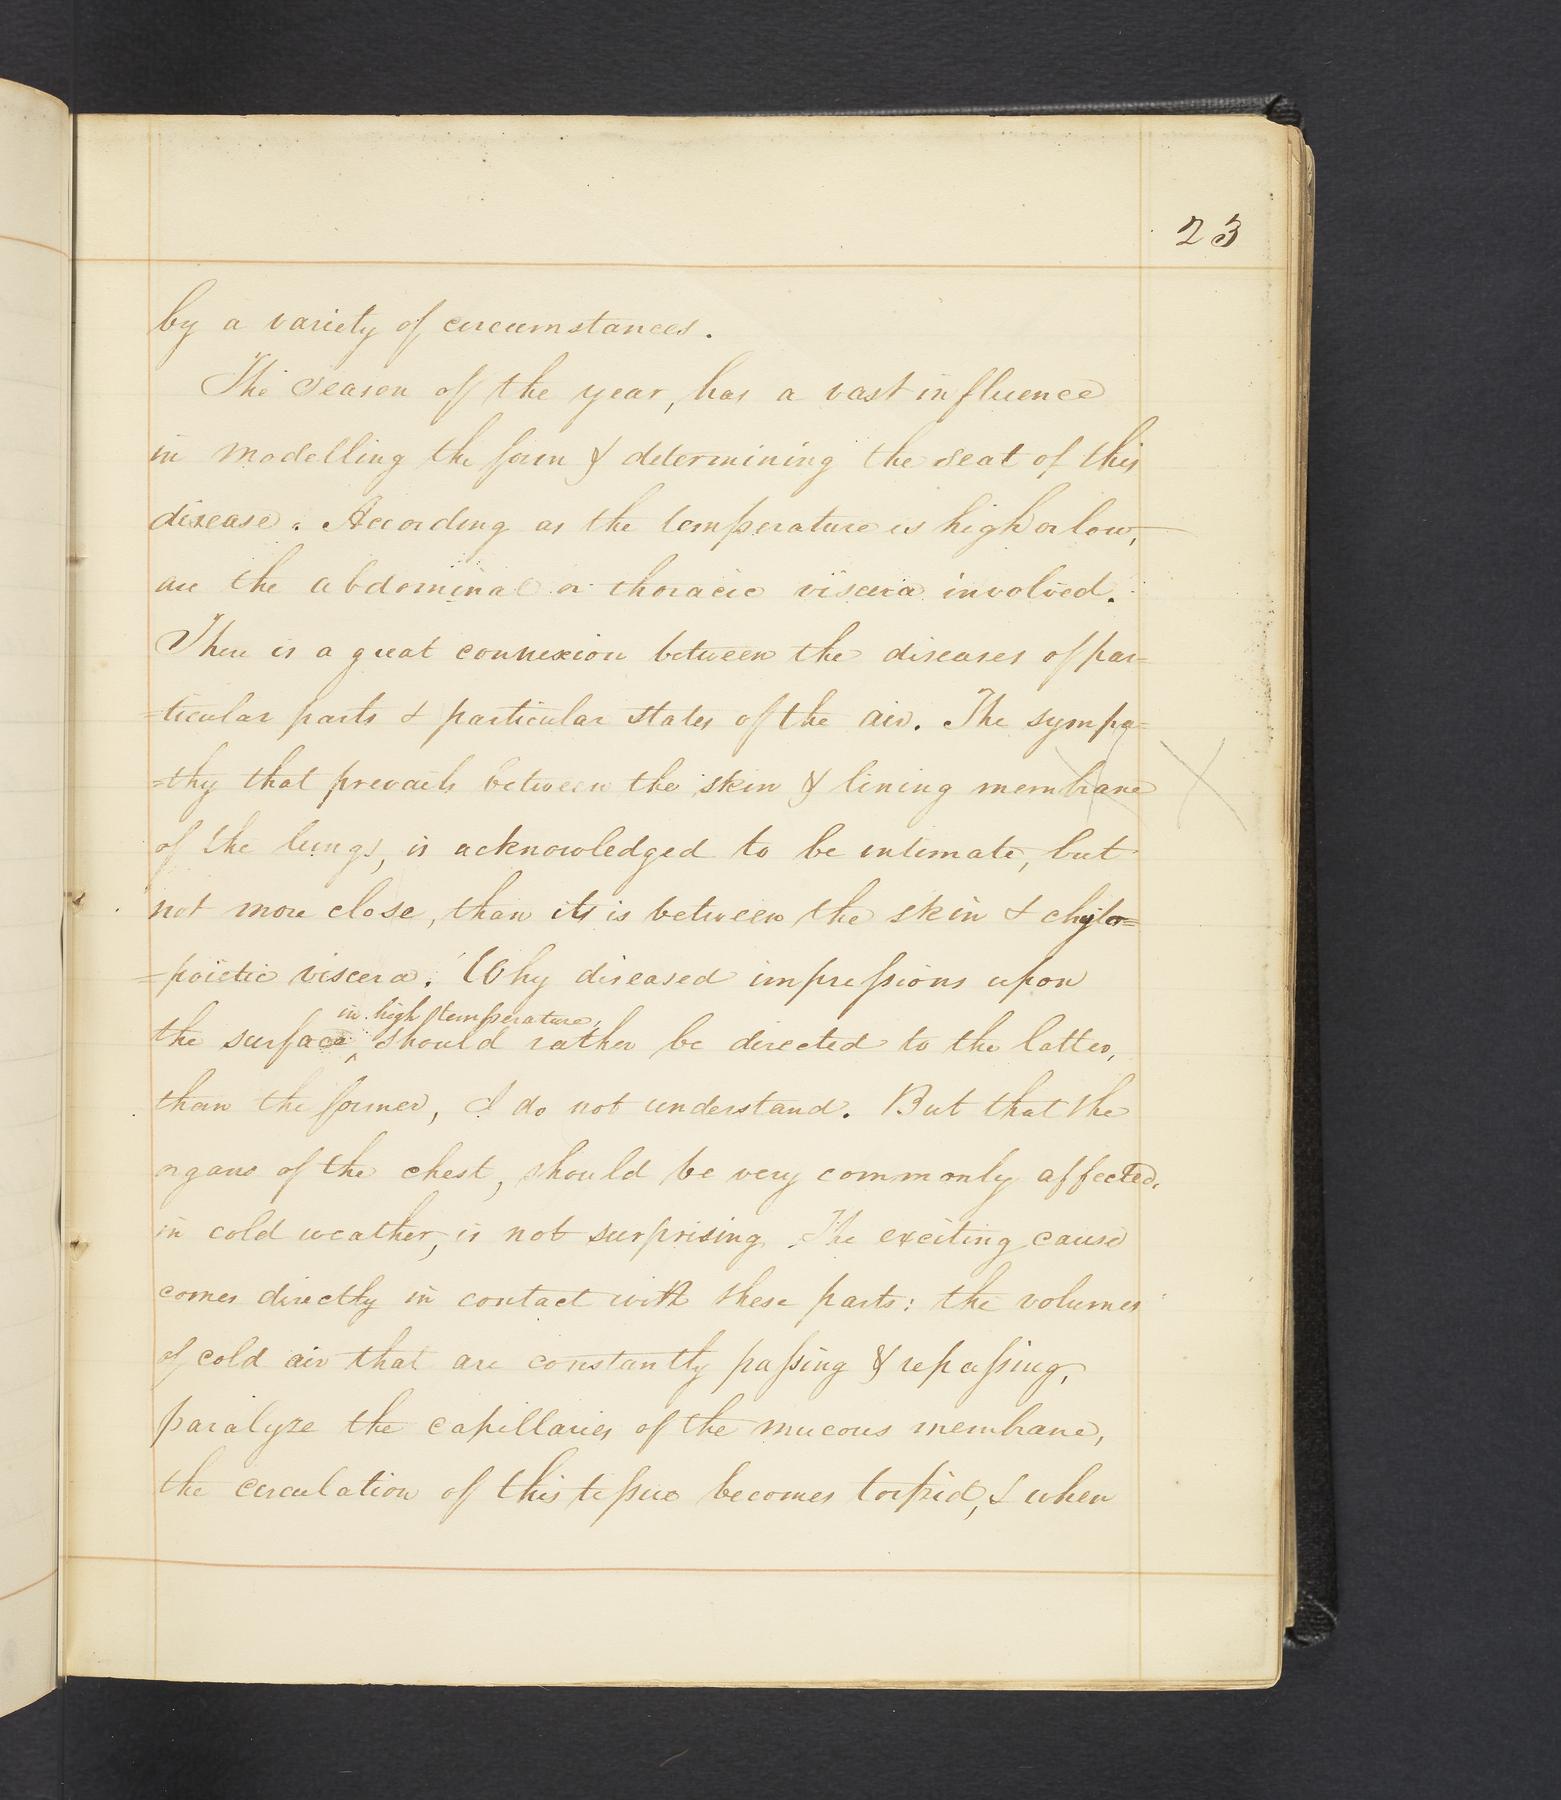 23
by a variety of circumstances.
The season of the year, has a vast influence
in modelling the form & determining the seat of this
disease. According as the temperature is high or low,
are the abdominal or thoracic viscera involved.
There is a great connexion between the diseases of par=
=ticular parts & particular states of the air. The sympa=
=thy that prevails between the skin & lining membrane
of the lungs, is acknowledged to be intimate, but
not more close, than its is between the skin & chylo=
=poietic viscera. Why diseased impressions upon
in high temperature,
the surface ‸ should rather be directed to the latter,
than the former, I do not understand. But that the
organs of the chest, should be very commonly affected,
in cold weather, is not surprising. The exciting cause
comes directly in contact with these parts: the volumes
of cold air that are constantly passing & repassing,
paralyze the capillaries of the mucous membrane,
the circulation of this tissue becomes torpid, & when